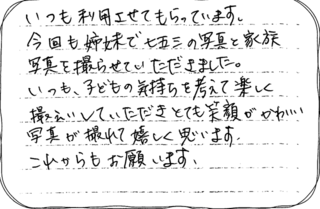 いつも利用させてもらっています。
今回も姉妹で七五三の写真と家族
写真を撮らせていただきました。
いつも、子どもの気持ちを考えて楽しく
撮影していただきとても笑顔がかわいい
写真が撮れて嬉しく思います。
これからもお願います。